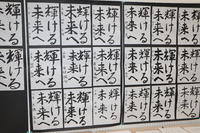 輝ける
未来へ
輝ける
未来へ
輝ける
未来へ
輝ける
未来へ
輝ける
未来へ
輝ける
未来へ
輝ける
未来へ
輝ける
未来へ
輝ける
未来へ
輝ける
未来へ
輝ける
未来へ
輝ける
未来へ
輝ける
未来へ
輝ける
未来へ
輝ける
未来へ
輝ける
未来へ
輝ける
未来へ